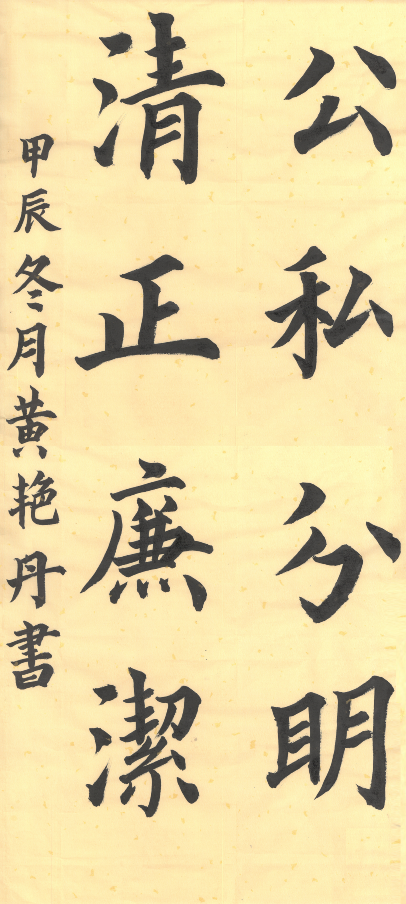 公私分明
清正廉潔
甲辰冬月黄艳丹書